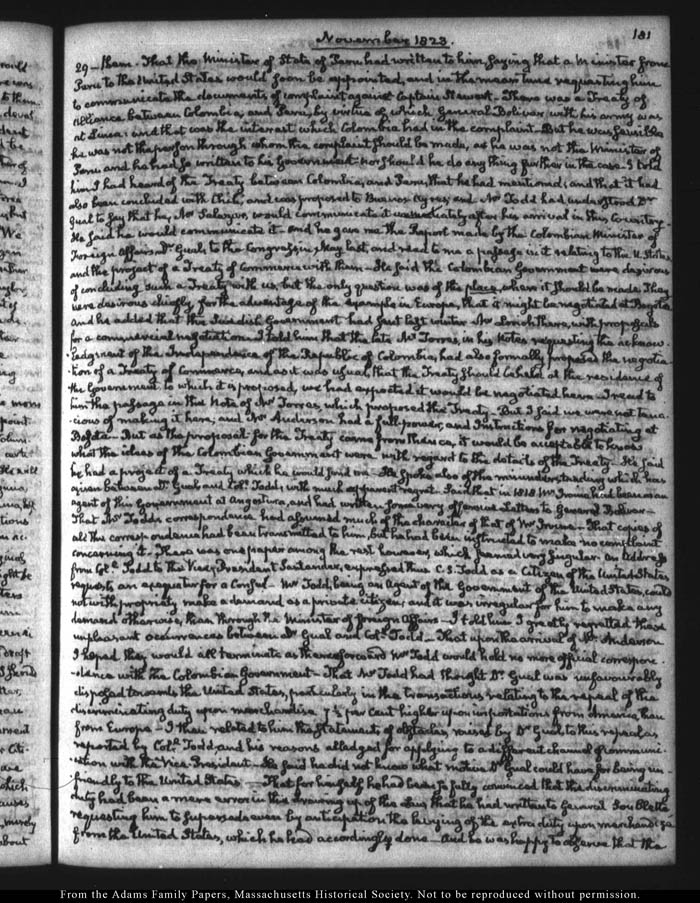 November 1823.
181
29 — them. That the Minister of State of Peru had written to him saying that a Minister from
Peru to the United States would soon be appointed, and in the mean time requesting him
to communicate the documents of complaint against Captain Stewart. There was a Treaty of
Alliance between Colombia, and Peru, by virtue of which General Bolivar with his army was
at Lima; and that was the interest which Colombia had in the complaint. But he was sensible
he was not the person through whom this complaint should be made, as he was not the Minister of
Peru and he had so written to his Government nor should he do any thing further in the case. I told
him I had heard of the Treaty between Colombia, and Peru, that he had mentioned; and that it had
also been concluded with Chili, and was proposed to Buenos Ayres, and Mr Todd had understood Dr
Gual to say that he, Mr Salazar, would communicate it immediately after his arrival in this Country.
He said he would communicate it — and he gave me the Report made by the Colombian Minister of
Foreign Affairs Dr Gual to the Congress in May last, and read to me a passage in it relating to the U. States
and the project of a Treaty of Commerce with them — He said the Colombian Government were desirous
of concluding such a Treaty with us, but the only question was of the place, where it should be made. They
were desirous chiefly for the advantage of the example in Europe, that it might be negotiated at Bogota
and he added that the Swedish Government had sent last winter Mr Lorich there, with proposals
for a commercial negotiation. I told him that the late Mr Torres, in his Notes requesting the acknow-
ledgment of the Independence of the Republic of Colombia, had also formally proposed the negotia-
tion of a Treaty of Commerce, and as it was usual that the Treaty should be held at the residence of
the Government to which it is proposed, we had expected it would be negotiated here — I read to
him the passage in the Note of Mr Torres, which proposed the Treaty — But I said we were not tena-
cious of making it here, and Mr Anderson had a full power, and Instructions for negotiating at
Bogota — But as the proposal for the Treaty came from thence, it would be acceptable to know
what the ideas of the Colombian Government were with regard to the details of the Treaty — He said
he had a project of a Treaty which he would send me. He spoke also of the misunderstanding which has
arisen between Dr Gual and Col. Todd, with much apparent regret. Said that in 1818 Mr Irvine had been as an
agent of this Government at Angostura, and had written some very offensive Letters to General Bolivar —
That Mr Todd's correspondence had assumed much of the character of that of Mr Irvine — That copies of
all this correspondence had been transmitted to him, but he had been instructed to make no complaint
concerning it — There was one paper among the rest however, which seemed very singular. An Address
from Col. Todd to the Vice President Santander, expressed thus C. S. Todd as a Citizen of the United States
requests an exequatur for a Consul — Mr Todd, being an Agent of the Government of the United States, could
not with propriety make a demand as a private citizen, and it was irregular for him to make any
demand otherwise, than through the Minister of foreign Affairs — I told him I greatly regretted these
unpleasant occurrences between Dr Gual and Col. Todd — That upon the arrival of Mr Anderson
I hoped they would all terminate as thenceforward Mr Todd would hold no more official correspon-
dence with the Colombian Government — That Mr Todd had thought Dr Gual was unfavourably
disposed towards the United States, particularly in the transactions relating to the repeal of the
discriminating duty upon merchandize 7½ per cent higher upon importations from America, than
from Europe — I then related to him the statements of obstacles raised by Dr Gual to this repeal as
reported by Col. Todd, and his reasons alledged for applying to a different channel of communi-
cation with the Vice President — He said he did not know what motive Dr Gual could have for being un-
friendly to the United States — That for himself he had been so fully convinced that this discriminating
duty had been a mere error in the drawing up of the Law that he had written to General Soublette
requesting him to supersede even by anticipation the levying of the extra duty upon merchandize
from the United States, which he had accordingly done — And he was happy to observe that the
From the Adams Family Papers, Massachusetts Historical Society. Not to be reproduced without permission.